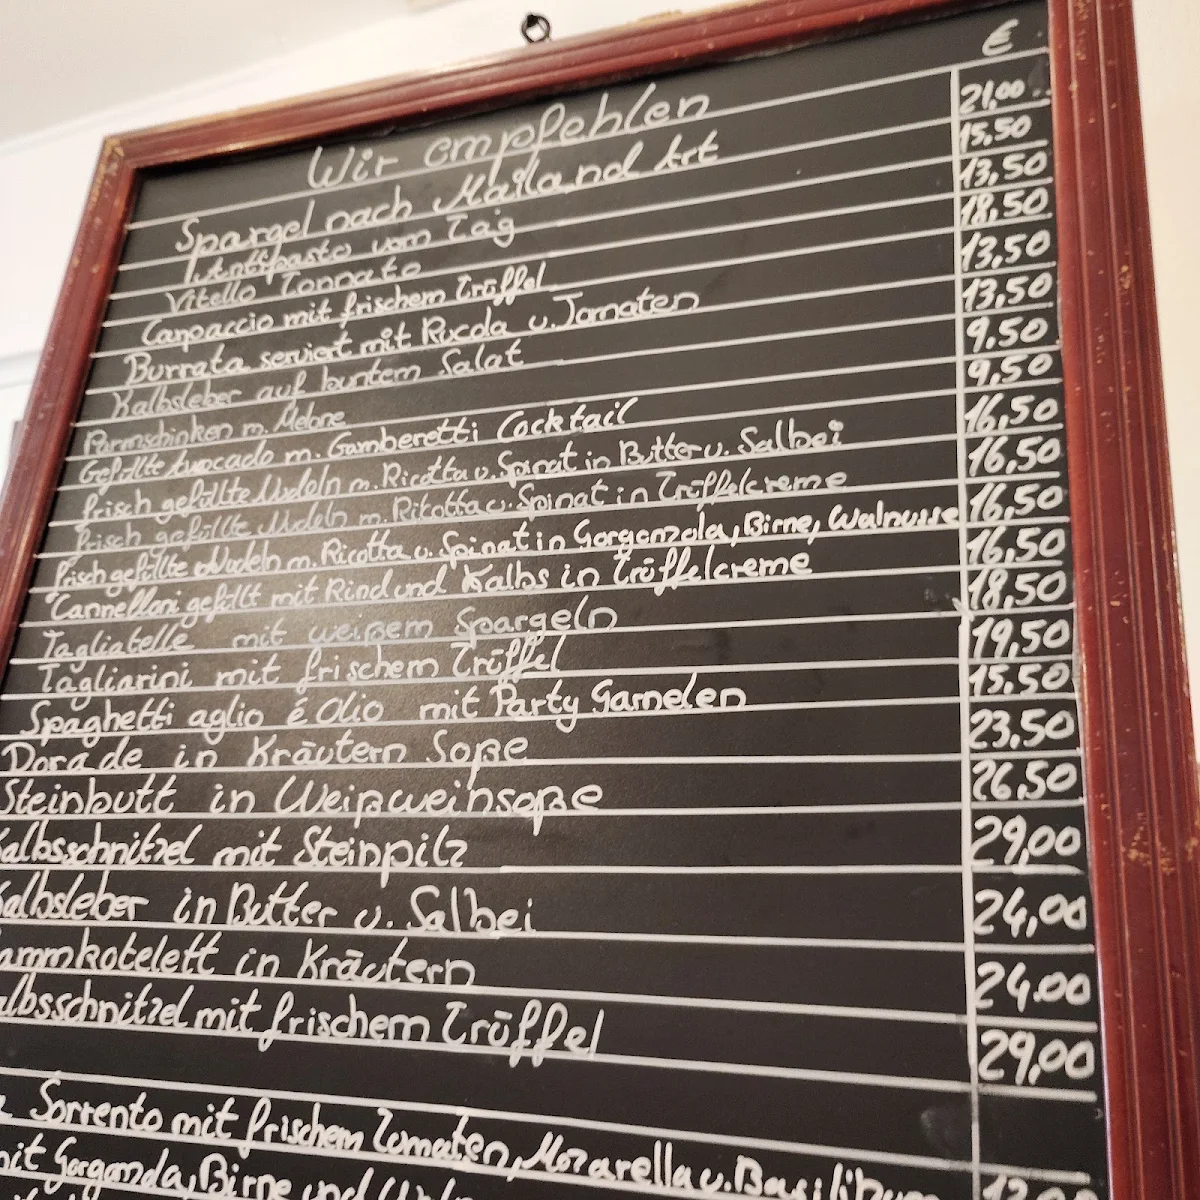 €
Wir empfehlen
Spargel nach Mailand Art 21,00
Antipasto vom Tag 15,50
Vitello Tonnato 13,50
Carpaccio mit frischem Trüffel 18,50
Burrata serviert mit Rucola u. Tomaten 13,50
Kalbsleber auf buntem Salat 13,50
Parmschinken m. Melone 9,50
Gefüllte Avocado m. Gamberetti Cocktail 9,50
frisch gefüllte Nudeln m. Ricotta u. Spinat in Butter u. Salbei 16,50
frisch gefüllte Nudeln m. Rikotta u. Spinat in Trüffelcreme 16,50
frisch gefüllte Nudeln m. Ricotta u. Spinat in Gorgonzola, Birne, Walnusse 16,50
Cannelloni gefüllt mit Rind und Kalbs in Trüffelcreme 16,50
Tagliatelle mit weißem Spargeln 18,50
Tagliarini mit frischem Trüffel 19,50
Spaghetti aglio é Olio mit Party Garnelen 15,50
Dorade in Kräutern Soße 23,50
Steinbutt in Weißweinsoße 26,50
albsschnitzel mit Steinpilz 29,00
albsleber in Butter u. Salbei 24,00
ammkotelett in Kräutern 24.00
albsschnitzel mit frischem Trüffel 29,00
Sorrento mit frischem Tomaten, Mozarella u. Basilikum
mit Gorgonzola, Birne und